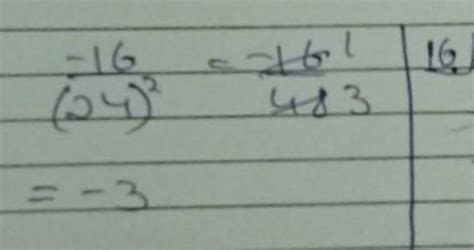 -16/(24)² = -16 1/48 3 16
= -3